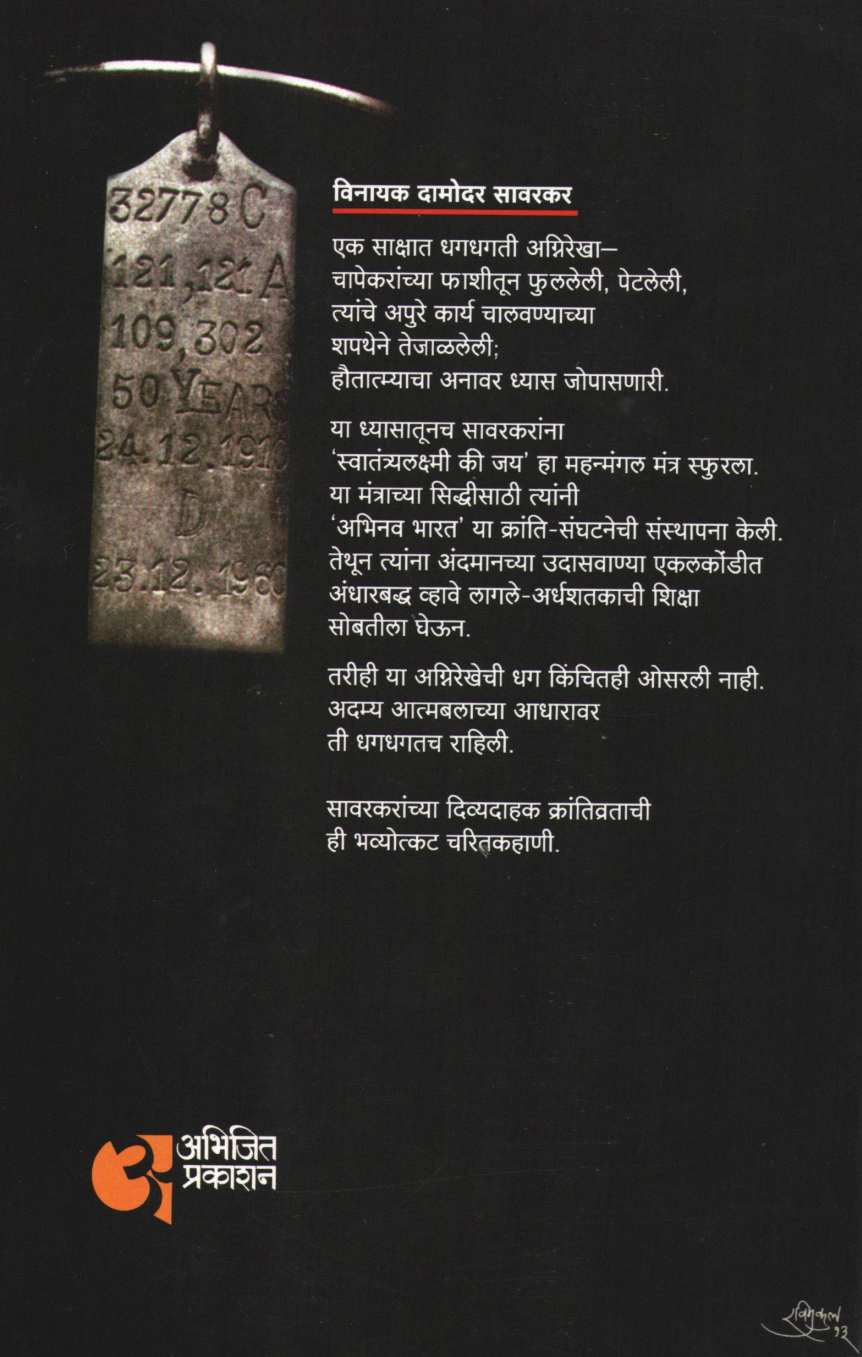 32778 C
121, 121 A
109, 302
50 YEARS
24.12.1910
D
23.12.1960
विनायक दामोदर सावरकर
एक साक्षात धगधगती अग्निरेखा–
चापेकरांच्या फाशीतून फुललेली, पेटलेली,
त्यांचे अपुरे कार्य चालवण्याच्या
शपथेने तेजाळलेली;
हौतात्म्याचा अनावर ध्यास जोपासणारी.
या ध्यासातूनच सावरकरांना
'स्वातंत्र्यलक्ष्मी की जय' हा महन्मंगल मंत्र स्फुरला.
या मंत्राच्या सिद्धीसाठी त्यांनी
'अभिनव भारत' या क्रांति-संघटनेची संस्थापना केली.
तेथून त्यांना अंदमानच्या उदासवाण्या एकलकोंडीत
अंधारबद्ध व्हावे लागले-अर्धशतकाची शिक्षा
सोबतीला घेऊन.
तरीही या अग्निरेखेची धग किंचितही ओसरली नाही.
अदम्य आत्मबलाच्या आधारावर
ती धगधगतच राहिली.
सावरकरांच्या दिव्यदाहक क्रांतिव्रताची
ही भव्योत्कट चरितकहाणी.
अभिजित
प्रकाशन
रविमुकुल
१३